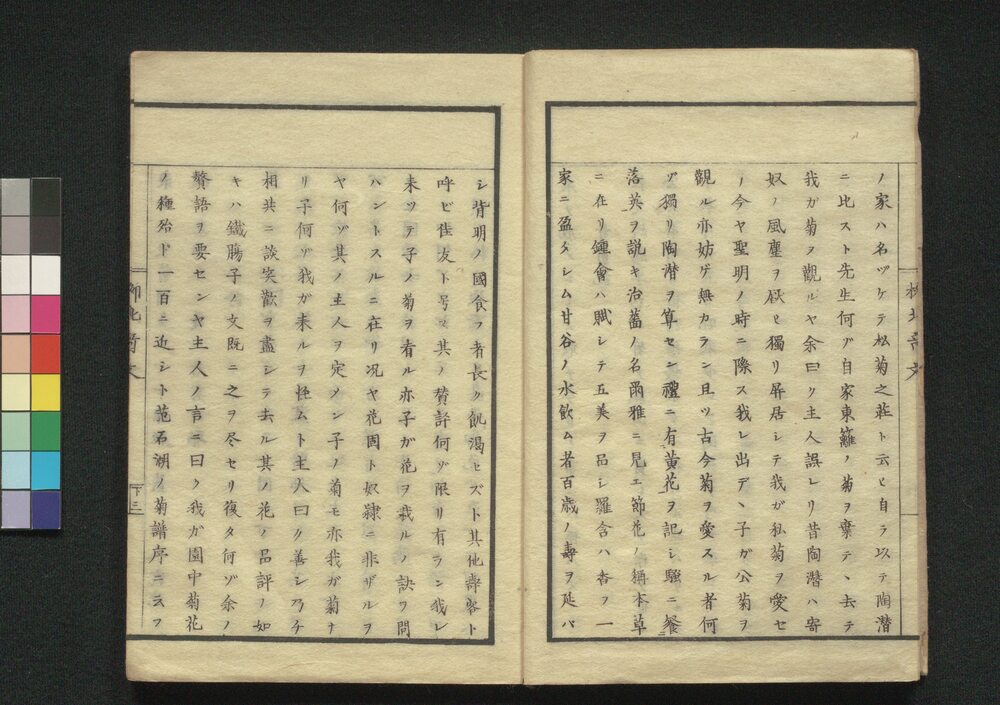 ノ家ハ名ヅケテ松菊之莊ト云ヒ自ラ以テ陶潜
ニ比スト先生何ゾ自家東籬ノ菊ヲ棄テヽ去テ
我ガ菊ヲ觀ルヤ余曰ク主人誤レリ昔陶潜ハ寄
奴ノ風塵ヲ厭ヒ獨リ屏居シテ我ガ私菊ヲ愛セ
ノ今ヤ聖明ノ時ニ際ス我レ出デヽ子ガ公菊ヲ
觀ル亦妨ゲ無カラン且ツ古今菊ヲ愛スル者何
ゾ獨リ陶潜ヲ算セン禮ニ有黄花ヲ記シ騷ニ餐
落英ヲ説キ治蘠ノ名爾雅ニ見エ節花ノ稱本草
ニ在リ鍾會ハ賦シテ五美ヲ品シ羅含ハ香ヲ一
家ニ盈タシム甘谷ノ水飲ム者百歳ノ壽ヲ延バ
柳北奇文
シ背明ノ國食フ者長ク飢渇セズト其他壽客ト
呼ビ佳友ト号ス其ノ賛評何ゾ限リ有ラン我レ
来ツテ子ノ菊ヲ看ル亦子ガ花ヲ我ルノ訣ヲ問
ハントスルニ在リ况ヤ花固ト奴隷ニ非ザルヲ
ヤ何ゾ其ノ主人ヲ定メン子ノ菊モ亦我ガ菊ナ
リ子何ゾ我ガ来ルヲ怪ムト主人曰ク善シ乃チ
相共ニ談笑歡ヲ盡シテ去ル其ノ花ノ品評ノ如
キハ鐵腸子ノ文既ニ之ヲ尽セリ復タ何ゾ余ノ
贅語ヲ要センヤ主人ノ言ニ曰ク我ガ園中菊花
ノ種殆ド一百ニ近シト范石湖ノ菊譜序ニ云フ
柳北奇文
下三